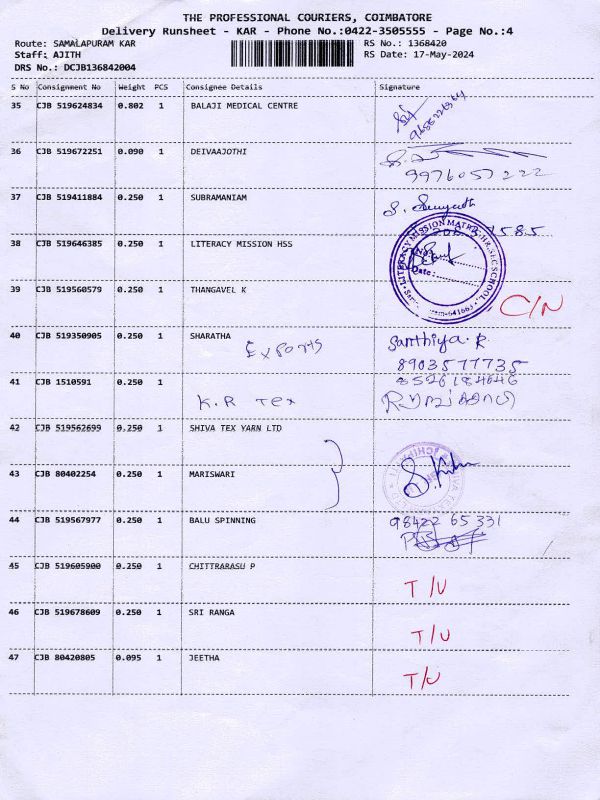 THE PROFESSIONAL COURIERS, COIMBATORE
Delivery Runsheet - KAR - Phone No.:0422-3505555 - Page No.:4
Route: SAMALAPURAM KAR RS No.: 1368420
Staff: AJITH RS Date: 17-May-2024
DRS No.: DCJB136842004
S No Consignment No Weight PCS Consignee Details Signature
35 CJB 519624834 0.802 1 BALAJI MEDICAL CENTRE
36 CJB 519672251 0.090 1 DEIVAAJOTHI
9976057222
37 CJB 519411884 0.250 1 SUBRAMANIAM
38 CJB 519646385 0.250 1 LITERACY MISSION HSS
LITERACY MISSION MATRIC HR. SEC SCHOOL
Date:
39 CJB 519560579 0.250 1 THANGAVEL K C/N
40 CJB 519350905 0.250 1 SHARATHA Santhiya. R
Exports 8903577735
41 CJB 1510591 0.250 1 8526184646
K.R Tex
42 CJB 519562699 0.250 1 SHIVA TEX YARN LTD
43 CJB 80402254 0.250 1 MARISWARI
44 CJB 519567977 0.250 1 BALU SPINNING 98422 65331
45 CJB 519605900 0.250 1 CHITTRARASU P T/U
46 CJB 519678609 0.250 1 SRI RANGA T/U
47 CJB 80420805 0.095 1 JEETHA T/U